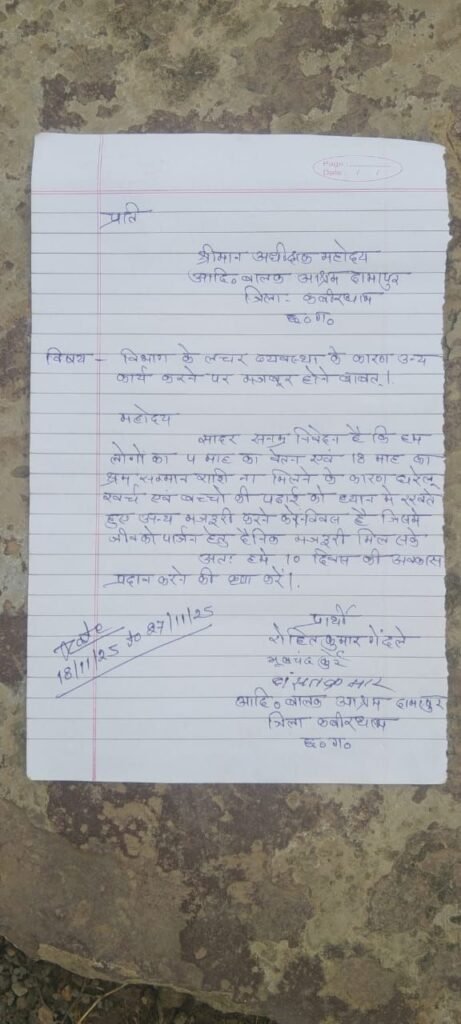 Page:
Date: / /
प्रति
श्रीमान अधीक्षक महोदय
आदि॰ बालक आश्रम दामापुर
जिला:- कबीरधाम
छ॰ग॰
विषय - विभाग के लचर व्यवस्था के कारण अन्य
कार्य करने पर मजबूर होने बाबत्।
महोदय
सादर सनम्र निवेदन है कि हम
लोगों का 4 माह का वेतन एवं 18 माह का
श्रम सम्मान राशि ना मिलने के कारण घरेलू
खर्च एवं बच्चों की पढ़ाई को ध्यान में रखते
हुए अन्य मजदूरी करने को विवश है जिसमे
जीवकोपार्जन हेतु दैनिक मजदूरी मिल सके
अतः हमे 10 दिवस की अवकास
प्रदान करने की कृपा करें।
प्रार्थी
रोहित कुमार गेंदले
मूलचंद कुर्रे
आदि॰ बालक आश्रम दामापुर
जिला कबीरधाम
छ॰ग॰
Date
18/11/25 to 27/11/25